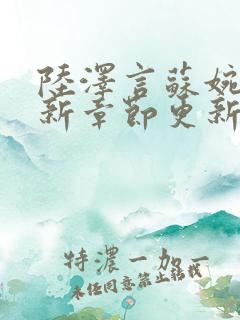 陸澤言蘇婉
新章節更新
特濃一加一
未經同意禁止轉載